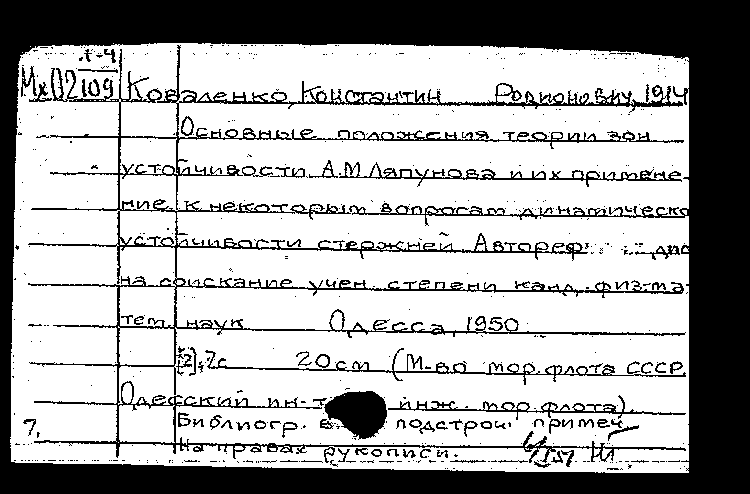 1-4
Мх02 109 Коваленко, Константин Родионович, 1914
Основные положения теории зон
устойчивости А.М Ляпунова и их примене-
ние к некоторым вопросам динамическо
устойчивости стержней Автореф дис
на соискание учен. степени канд. физ-ма
тем наук Одесса, 1950
[2], 7с 20 см (М-во мор. флота СССР.
Одесский ин-т инж. мор. флота).
Библиогр. в подстроч примеч
7. На правах рукописи.